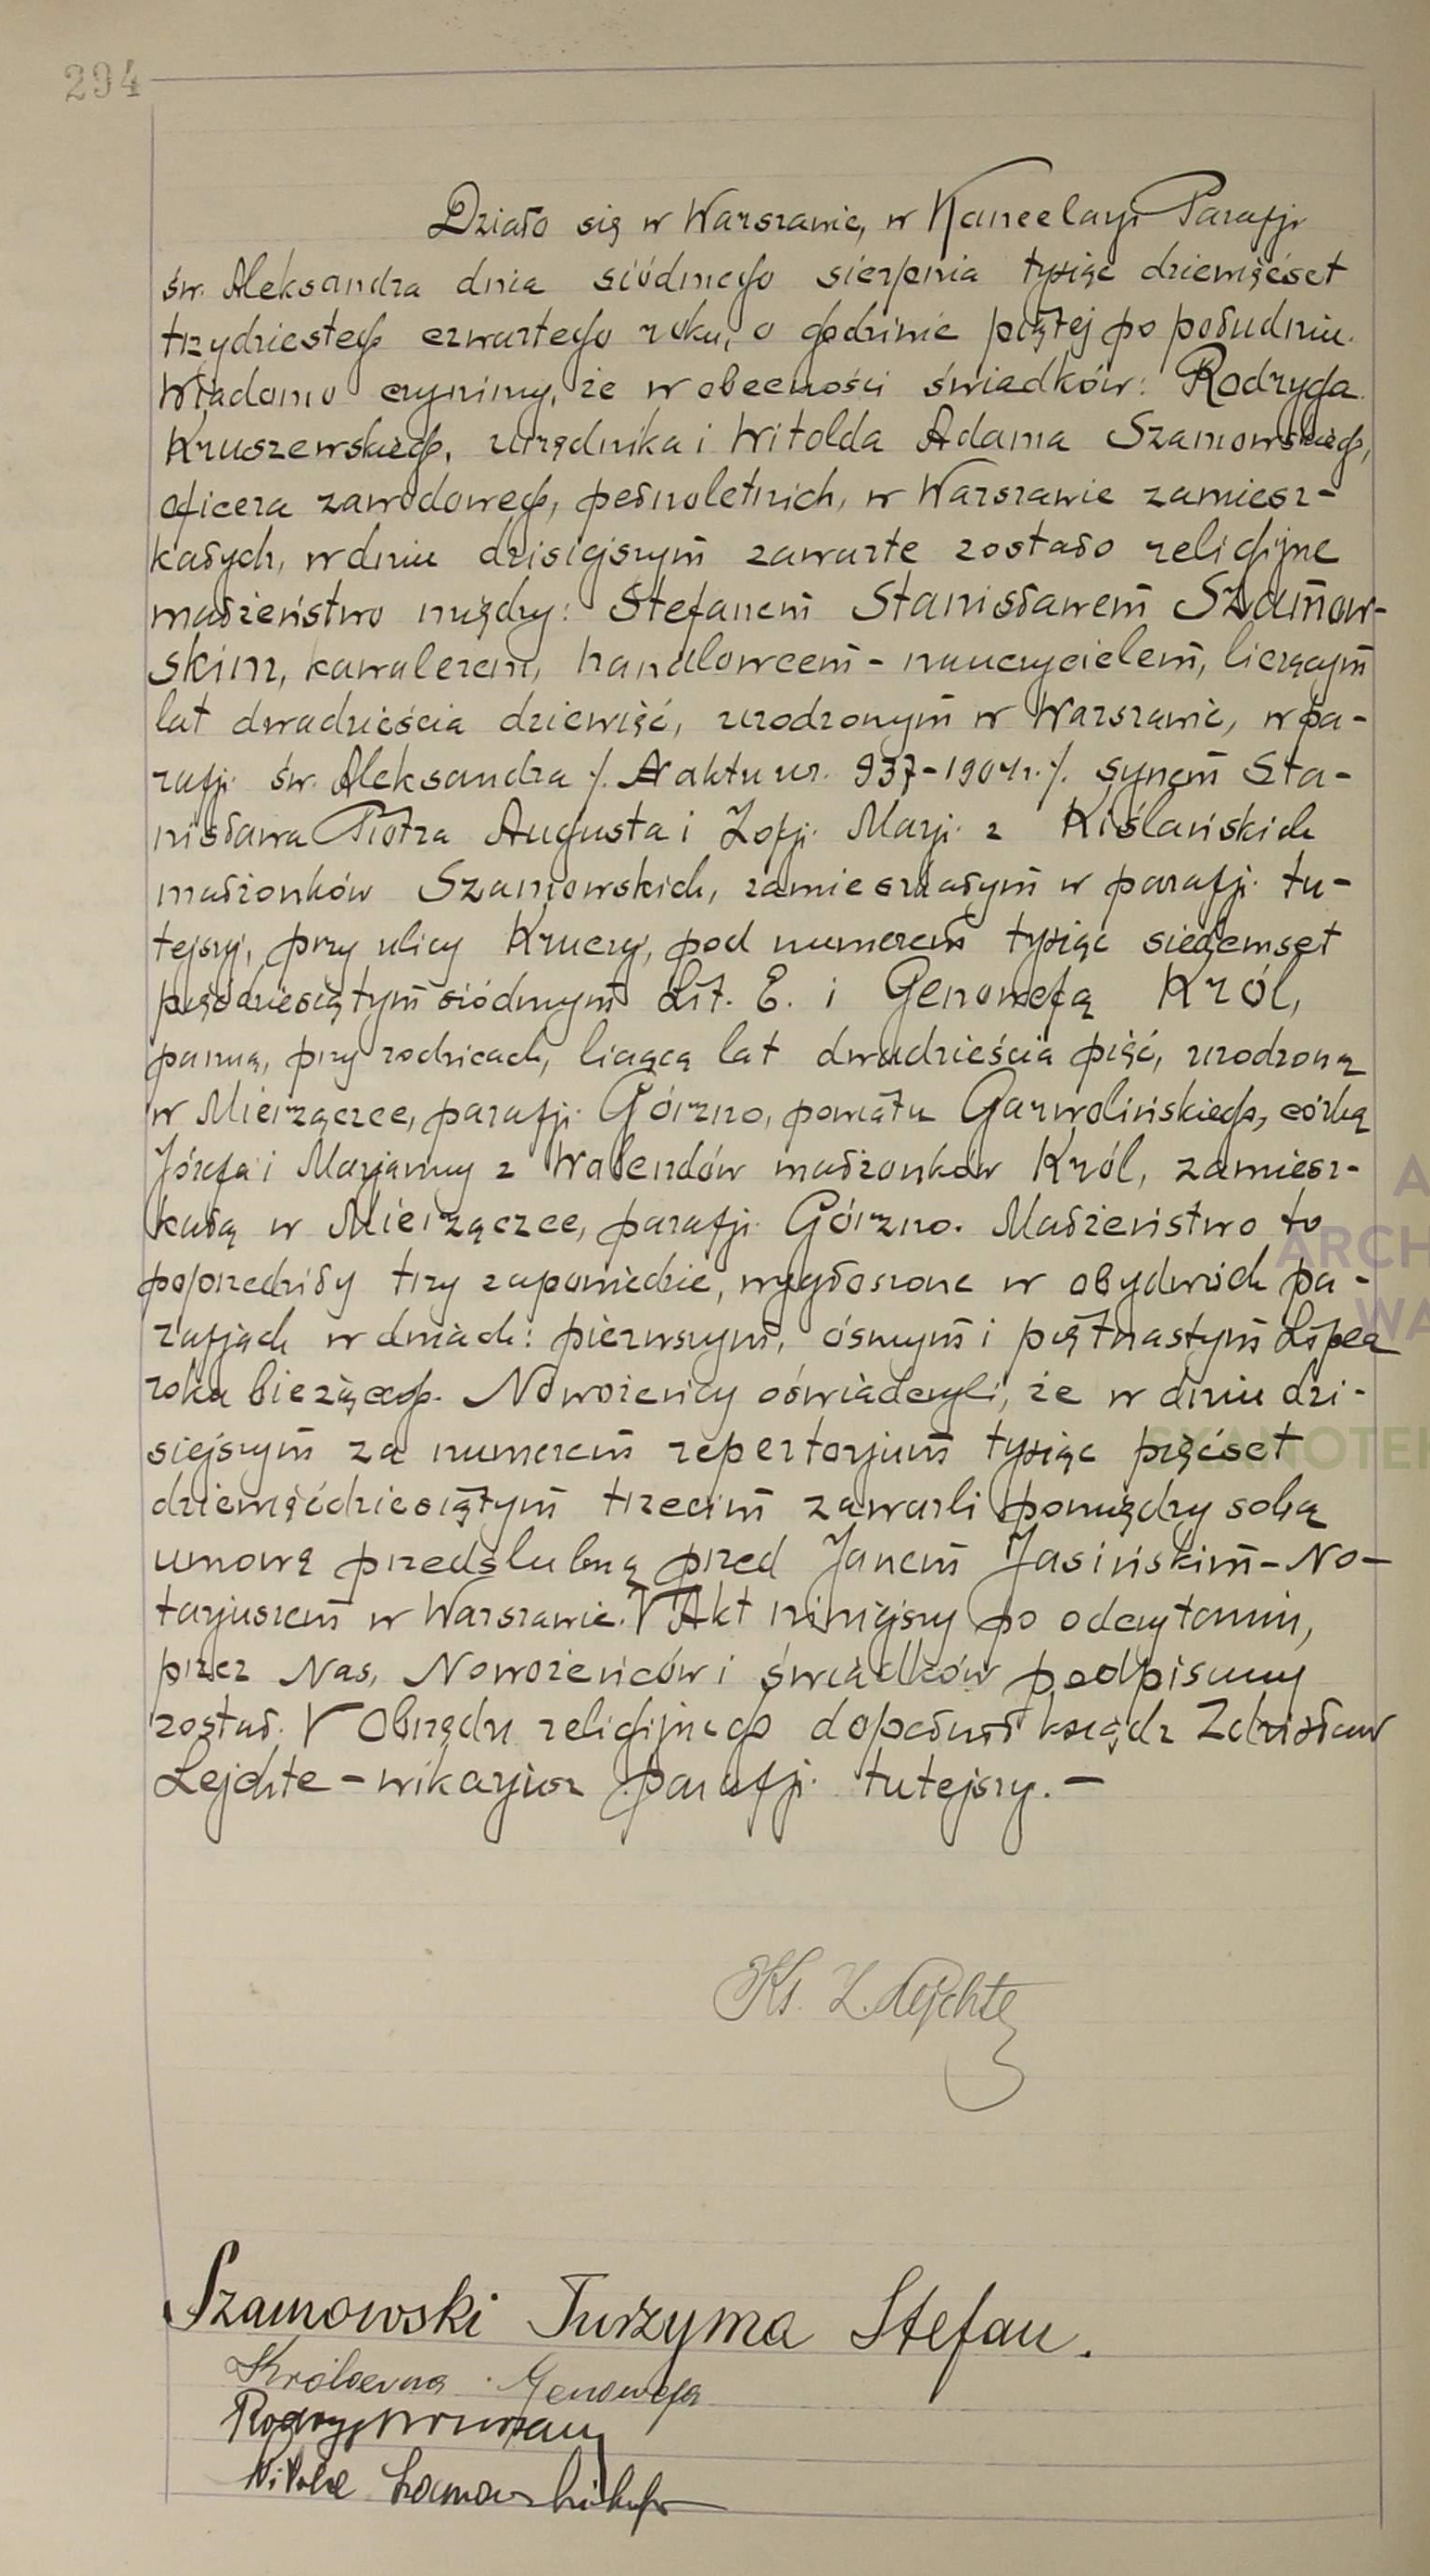 294
Działo się w Warszawie, w Kancelarji Parafji
św. Aleksandra dnia siódmego sierpnia tysiąc dziewięćset
trzydziestego czwartego roku, o godzinie piątej po południu.
Wiadomo czynimy, że w obecności świadków: Rodryga
Kruszewskiego, urzędnika i Witolda Adama Szamowskiego,
oficera zawodowego, pełnoletnich, w Warszawie zamiesz-
kałych, w dniu dzisiejszym zawarte zostało religijne
małżeństwo między: Stefanem Stanisławem Szamow-
skim, kawalerem, handlowcem - nauczycielem, liczącym
lat dwadzieścia dziewięć, urodzonym w Warszawie, w pa-
rafji św. Aleksandra /. N aktu ur. 937-1904 r. /. synem Sta-
nisława Piotra Augusta i Zofji Marji z Kiślańskich
małżonków Szamowskich, zamieszkałym w parafji tu-
tejszej, przy ulicy Kruczej, pod numerem tysiąc siedemset
pięćdziesiątym siódmym Lit. E. i Genowefą Król,
panną, przy rodzicach, liczącą lat dwadzieścia pięć, urodzoną
w Mierżączce, parafji Górzno, powiatu Garwolińskiego, córką
Józefa i Marjanny z Walendów małżonków Król, zamiesz-
kałą w Mierżączce, parafji Górzno. Małżeństwo to
poprzedziły trzy zapowiedzie, wygłoszone w obydwóch pa-
rafjach w dniach: pierwszym, ósmym i piętnastym Lipca
roku bieżącego. Nowożeńcy oświadczyli, że w dniu dzi-
siejszym za numerem repertorjum tysiąc pięćset
dziewięćdziesiątym trzecim zawarli pomiędzy sobą
umowę przedślubną przed Janem Jasińskim - No-
tarjuszem w Warszawie. V Akt niniejszy po odczytaniu,
przez Nas, Nowożeńców i świadków podpisany
został. V Obrzędu religijnego dopełnił ksiądz Zdzisław
Lejchte - wikarjusz parafji tutejszej. -
Ks. Z. Lejchte
Szamowski Turzyma Stefan.
Królówna Genowefa
Witold Szamowski